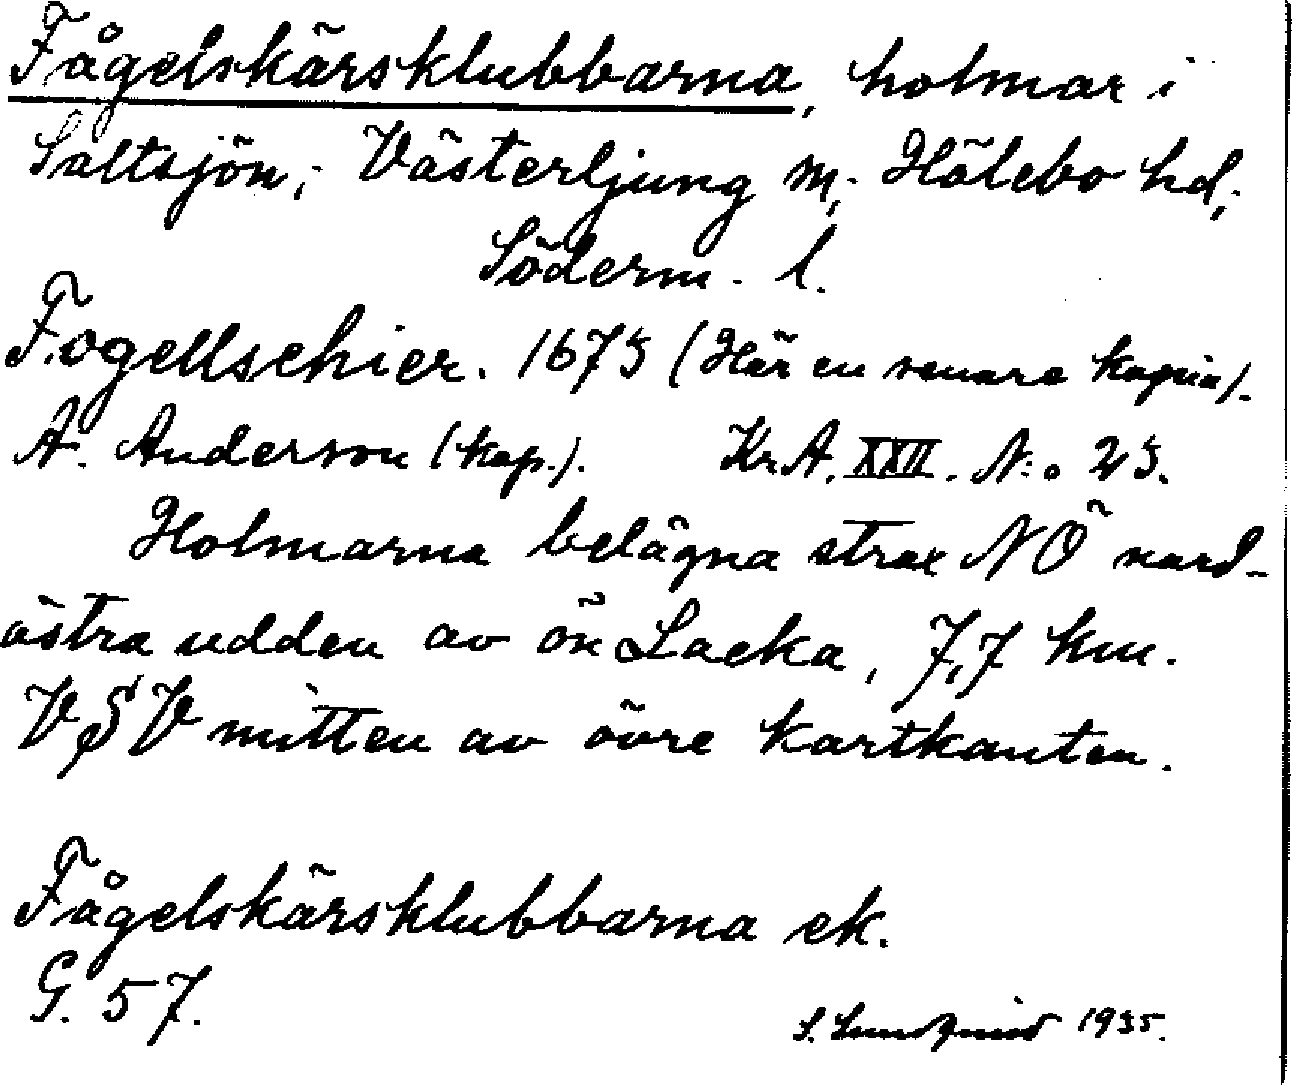 Fågelskärsklubbarna, holmar i
Saltsjön; Västerljung m; Hölebo hd;
Söderm. l.
Fogellschier. 1673 (Här en senare kopia).
A. Anderson (kop.). Kr.A. XXII. N:o 23.
Holmarna belägna strax NÖ nord-
östra udden av ön Lacka, 7,7 km.
VSV mitten av övre kartkanten.
Fågelskärsklubbarna ek.
G. 57.
S. Lundqvist 1935.